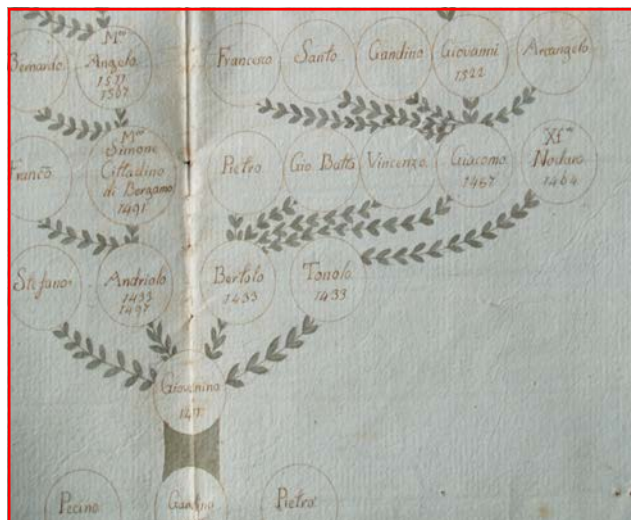 Bernardo
Mr
Angolo
1511
1567
Francesco
Santo
Gandino
Giovanni
1522
Arcangelo
Mr
Simone
Cittadino
di Bergamo
1491
Pietro
Gio Batta
Vincenzo
Giacomo
1467
Nodaro
1464
Stefano
Andriolo
1433
1497
Bertolo
1433
Tonolo
1433
Giovanino
Pecino
Gandino
Pietro